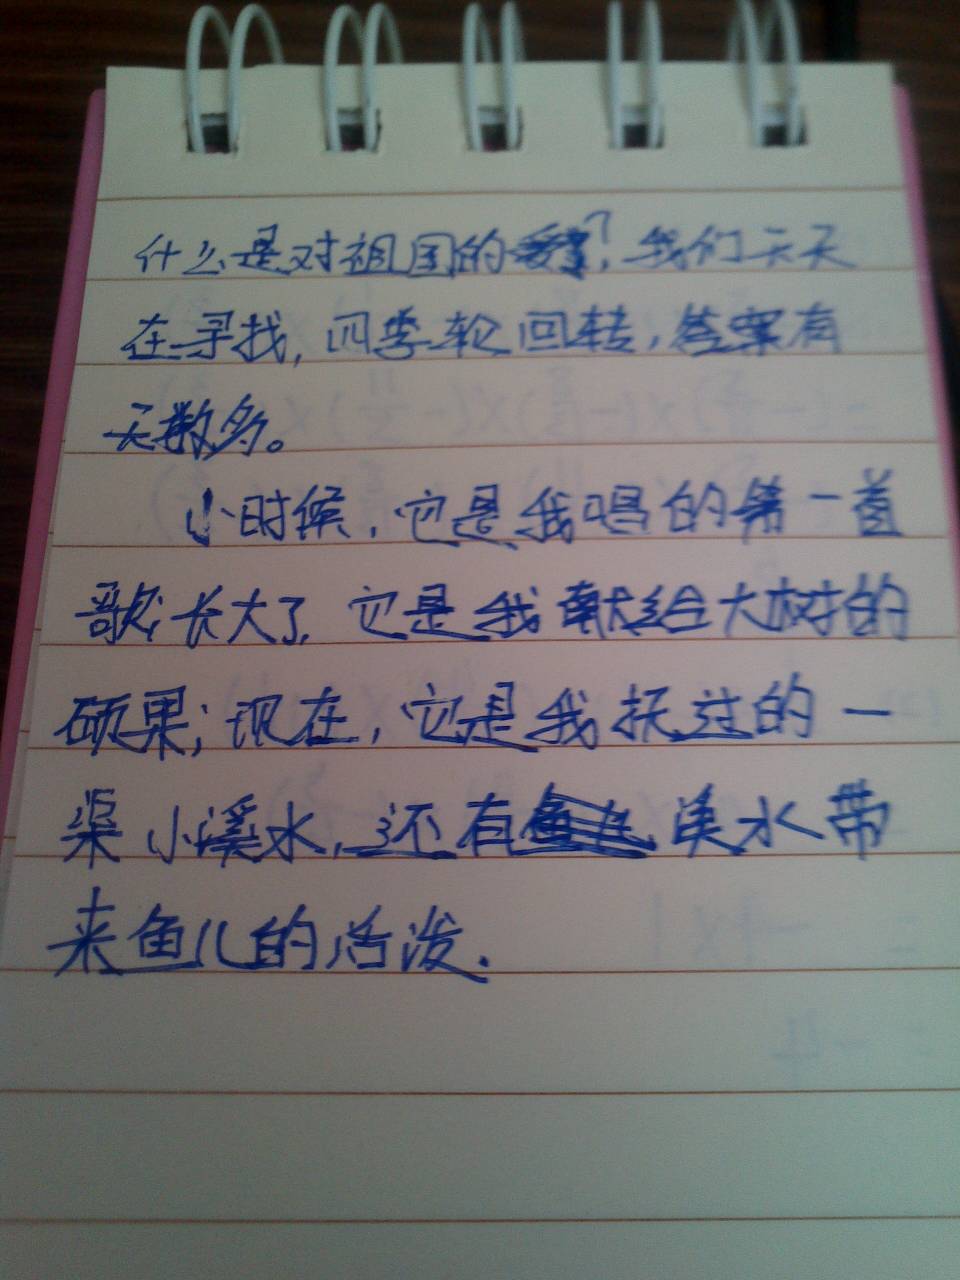 什么是对祖国的爱?我们天天
在寻找,四季轮回转,答案有
无数多。
小时候,它是我唱的第一首
歌;长大了,它是我献给大树的
硕果;现在,它是我抚过的一
渠小溪水,还有溪水带
来鱼儿的活泼.